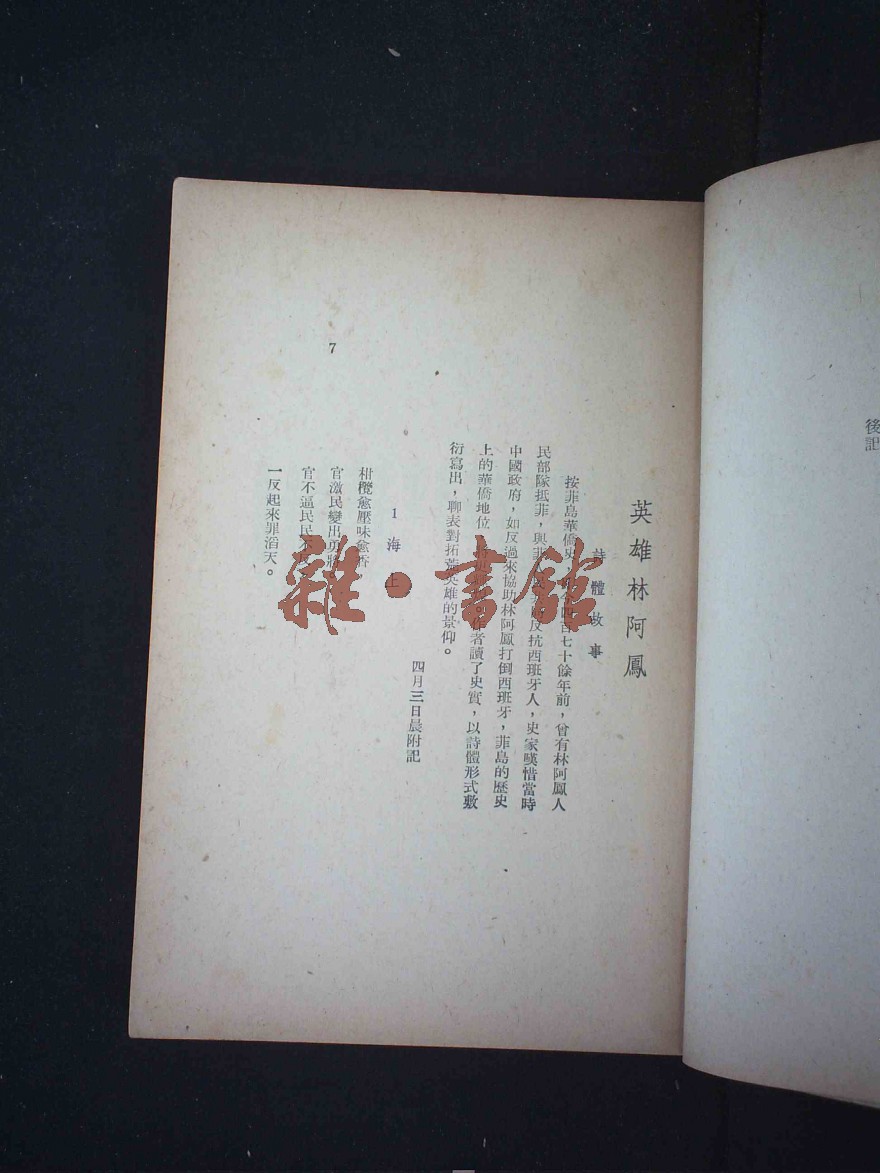 後記
英雄林阿鳳
詩體故事
按菲島華僑史,四百七十餘年前,曾有林阿鳳人
民部隊抵菲,與菲反抗西班牙人,史家嘆惜當時
中國政府,如反過來協助林阿鳳打倒西班牙,菲島的歷史
上的華僑地位,作者讀了史實,以詩體形式敷
衍寫出,聊表對拓荒英雄的景仰。
四月三日晨附記
1 海上
柑欖愈壓味愈香
官激民變出勇將
官不逼民民不
一反起來罪滔天。
7
雜·書館